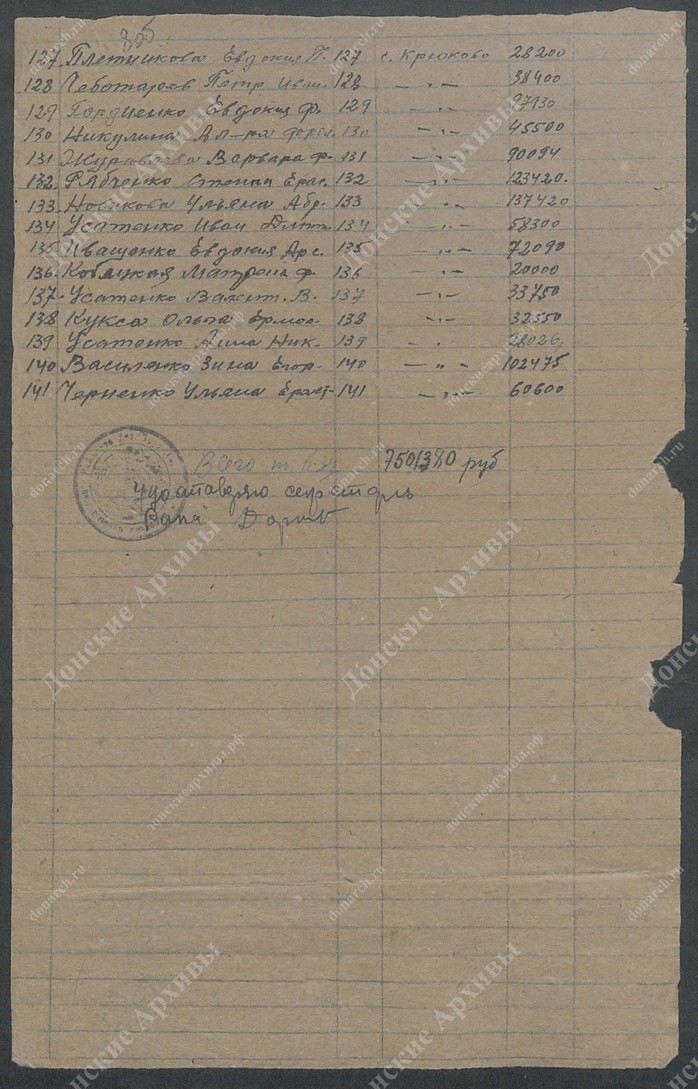 305
127 Плетникова Евдокия П. 127 с. Крюково 28200
128 Чеботарев Петр Иван. 128 — " — 38400
129 Гордиенко Евдокия Ф. 129 — " — 27930
130 Никулина Ал-ра 130 — " — 45500
131 Журавлева Варвара Ф. 131 — " — 90094
132 Рябченко Степан Ерас. 132 — " — 123420.
133 Новикова Ульяна Абр. 133 " 137420
134 Усатенко Иван Дмит. 134 — " — 58300
135 Иващенко Евдокия Арс. 135 — " — 72090
136 Матрена Ф. 136 — " — 20000
137 Усатенко В. 137 — " — 33750
138 Кукса Ольга 138 — " — 32550
139 Усатенко Анна Ник. 139 " 28026.
140 Василенко Зина Егор. 140 — " — 102475
141 Черненко Ульяна 141 — " — 60600
Всего 7501380 руб
секретарь
Донские Архивы
donarch.ru
донскиеархивы.рф